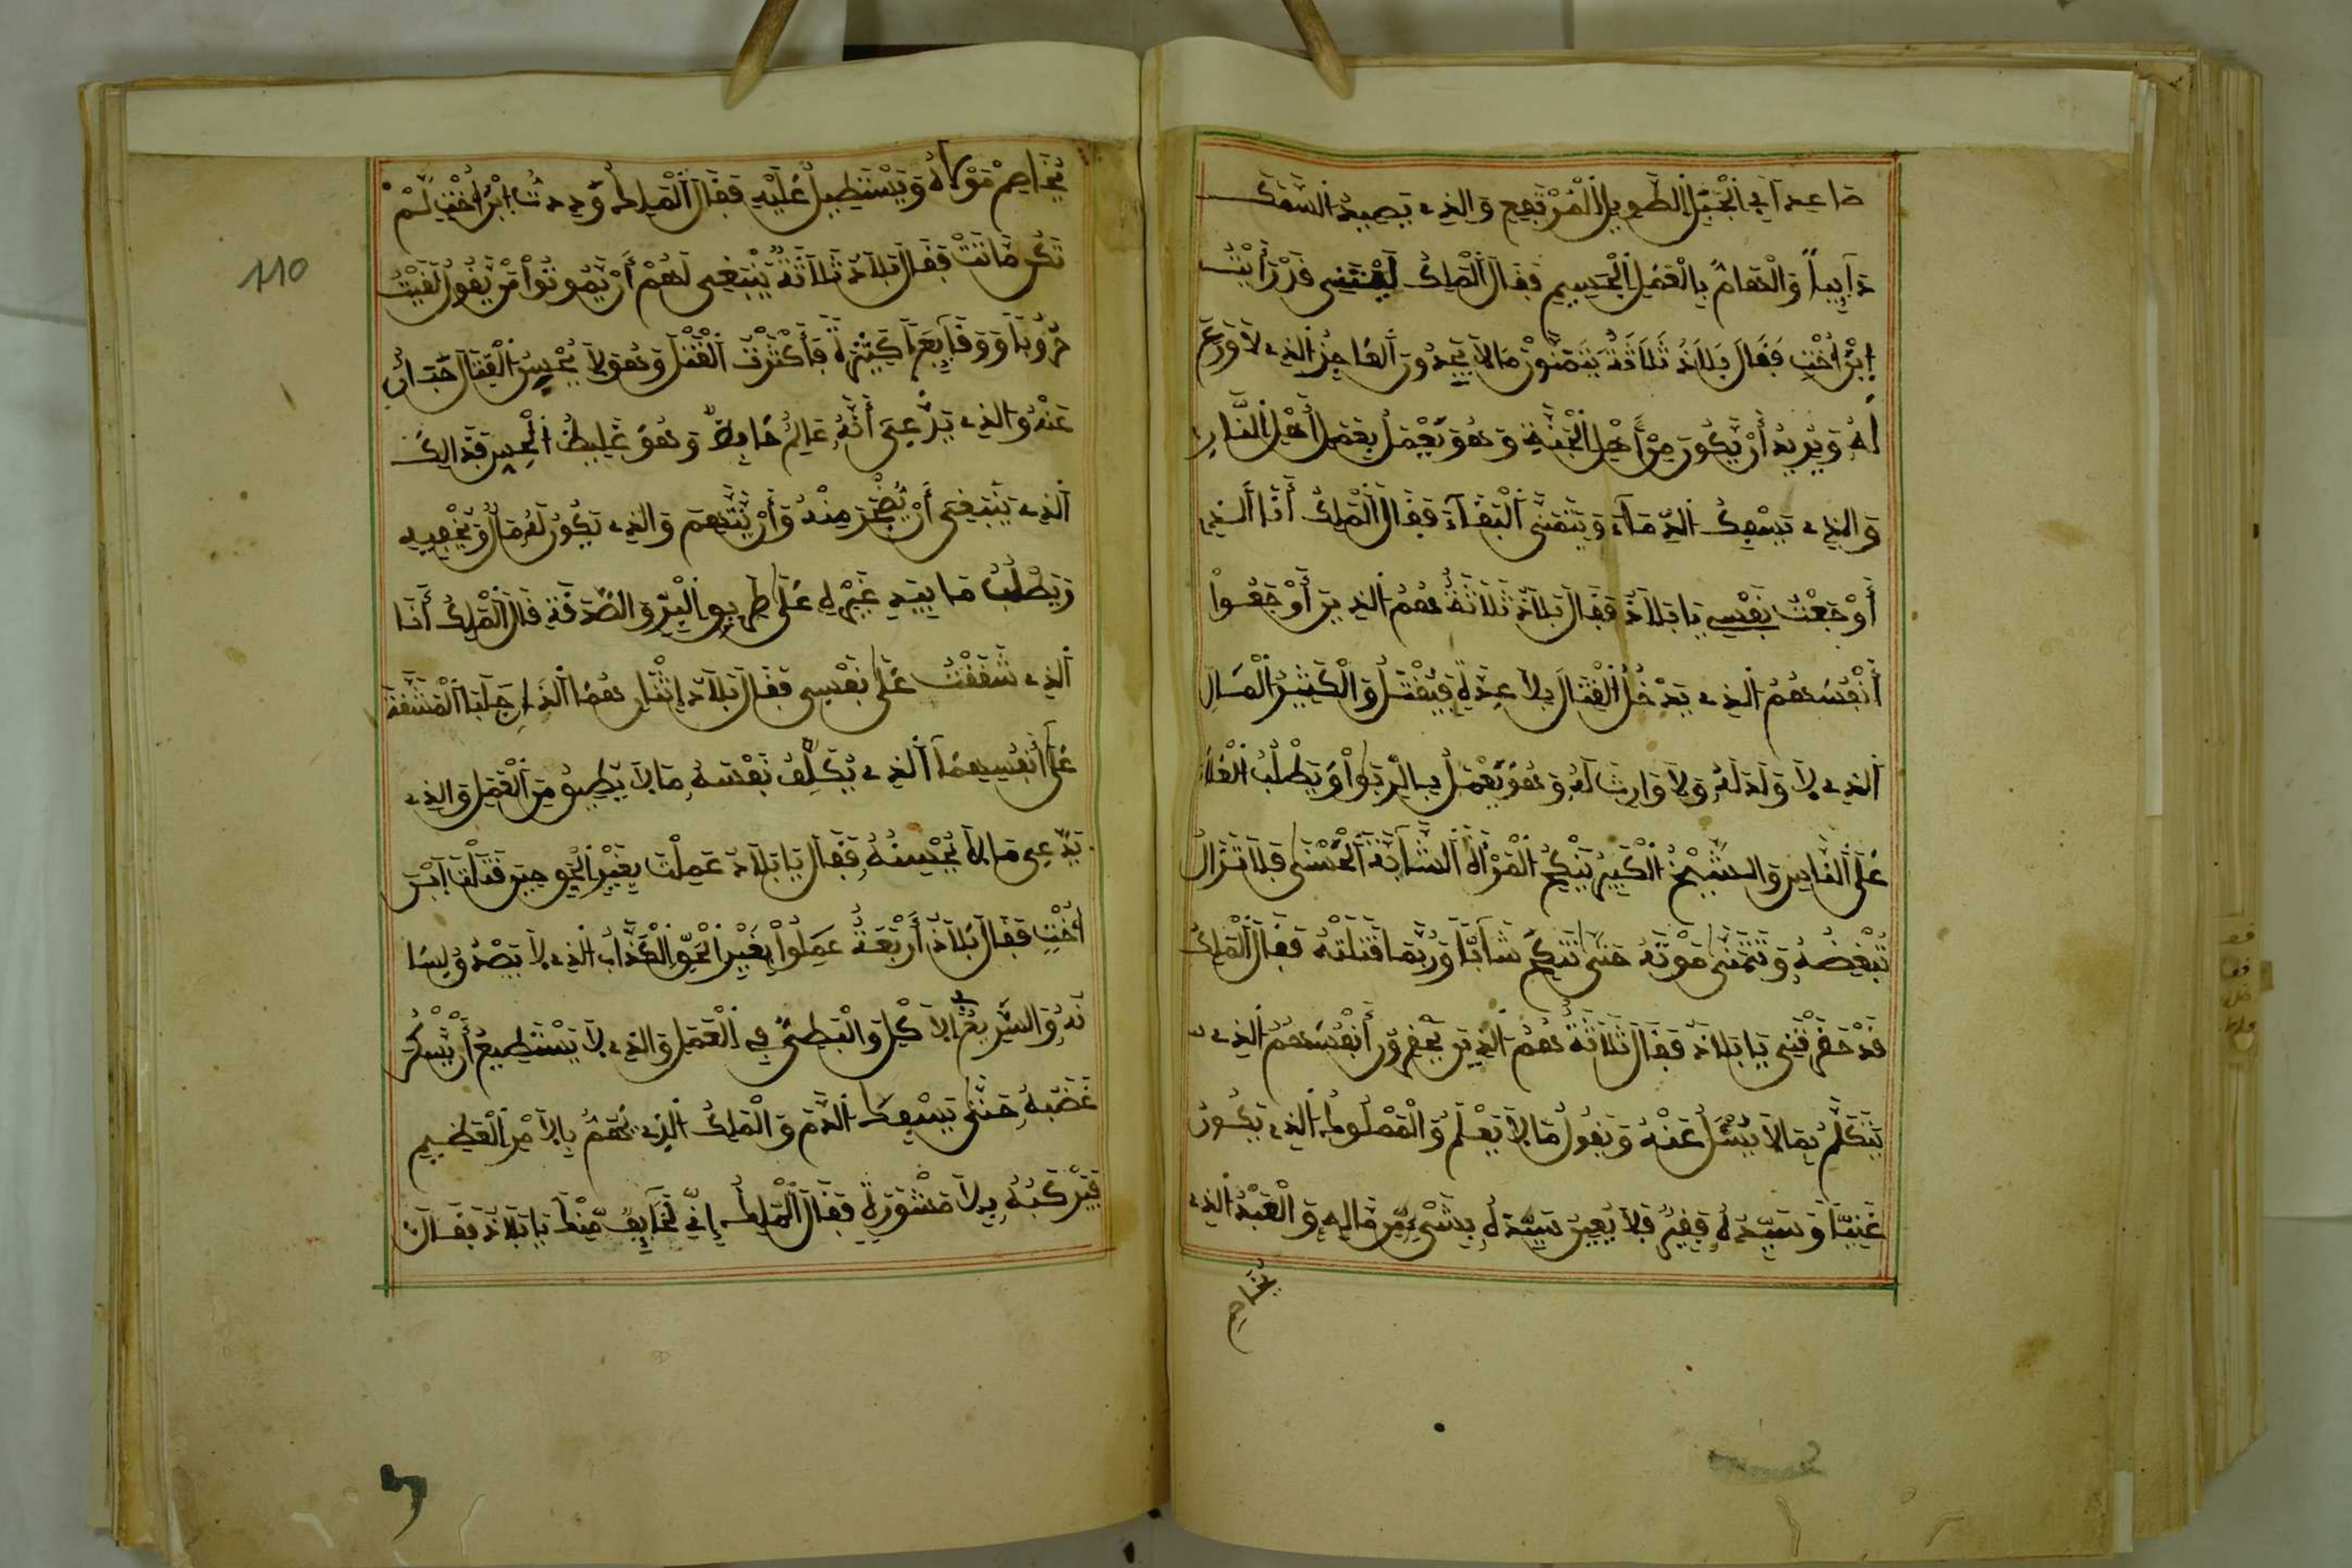 صَاعِدًا فِي الْجَبَلِ الطَّوِيلِ الْمُرْتَفِعِ وَالذِي يَصِيدُ السَّمَكَ
دَايِبًا وَالْهَامُّ بِالْعَمَلِ الْجَسِيمِ فَقَالَ الْمَلِكُ لَيْتَنِي قَدْ رَأَيْتُ
إِبْرَاخْتِ فَقَالَ بَلَاذُ ثَلَاثَةٌ يَتَمَنَّوْنَ مَا لَا يَجِدُونَ الْفَاجِرُ الذِي لَا وَرَعَ
لَهُ وَيُرِيدُ أَنْ يَّكُونَ مِنْ أَهْلِ الْجَنَّةِ وَهُوَ يَعْمَلُ بِعَمَلِ أَهْلِ النَّارِ
وَالذِي يَسْفِكُ الدِّمَاءَ وَيَتَمَنَّى الْبَقَاءَ فَقَالَ الْمَلِكُ أَنَا الذِي
أَوْجَعْتُ نَفْسِي يَا بَلَاذُ فَقَالَ بَلَاذُ ثَلَاثَةٌ هُمُ الذِينَ أَوْجَعُوا
أَنْفُسَهُمُ الذِي يَدْخُلُ الْقِتَالَ بِلَا عِدَّةٍ فَيُقْتَلُ وَالْكَثِيرُ الْمَالِ
الذِي لَا وَلَدَ لَهُ وَلَا وَارِثَ لَهُ وَهُوَ يَعْمَلُ بِالرِّبَوا وَيَطْلُبُ الْغَلَاءَ
عَلَى النَّاسِ وَالشَّيْخُ الْكَبِيرُ يَنْكِحُ الْمَرْأَةَ الشَّابَّةَ الْحُسْنَى فَلَا تَزَالُ
تُبْغِضُهُ وَتَتَمَنَّى مَوْتَهُ حَتَّى تَنْكِحَ شَابًّا وَرُبَّمَا قَتَلَتْهُ فَقَالَ الْمَلِكُ
قَدْ حَقَرْتَنِي يَا بَلَاذُ فَقَالَ ثَلَاثَةٌ هُمُ الذِينَ يَحْقِرُونَ أَنْفُسَهُمُ الذِي
يَتَكَلَّمُ بِمَا لَا يُسْئَلُ عَنْهُ وَيَقُولُ مَا لَا يَعْلَمُ وَالْمَمْلُوكُ الذِي يَكُونُ
غَنِيًّا وَسَيِّدُهُ فَقِيرٌ فَلَا يُعِينُ سَيِّدَهُ بِشَيْءٍ مِّن مَّالِهِ وَالْعَبْدُ الذِي
يُخَاصِمُ
110
يُخَاصِمُ مَوْلَاهُ وَيَسْتَطِيلُ عَلَيْهِ فَقَالَ الْمَلِكُ وَدِدْتُ إِبْرَاخْتِ لَمْ
تَكُنْ مَاتَتْ فَقَالَ بَلَاذُ ثَلَاثَةٌ يَنْبَغِي لَهُمْ أَنْ يَّمُوتُوا مَنْ يَّقُولُ لَقِيتُ
حُرُوبًا وَوَقَايِعَ كَثِيرَةً فَأَكْثَرْتُ الْقَتْلَ وَهُوَ لَا يُحْسِنُ الْقِتَالَ
عَنْهُ وَالذِي يَدَّعِي أَنَّهُ عَالِمٌ حَافِظٌ وَهُوَ غَلِيظُ فَذَالِكَ
الذِي يَنْبَغِي أَنْ يُّضْجَرَ مِنْهُ وَأَنْ يُّتَّهَمَ وَالذِي يَكُونُ لَهُ مَالٌ وَيُخْفِيهِ
وَيَطْلُبُ مَا بِيَدِ غَيْرِهِ عَلَى طَرِيقِ الْبِرِّ وَالصَّدَقَةِ قَالَ الْمَلِكُ أَنَا
الذِي شَقَقْتُ عَلَى نَفْسِي فَقَالَ بَلَاذُ إِثْنَانِ هُمَا الذَانِ جَلَبَا الْمَشَقَّةَ
عَلَى أَنْفُسِهِمَا الذِي يُكَلِّفُ نَفْسَهُ مَا لَا يُطِيقُ مِنَ الْعَمَلِ وَالذِي
يَدَّعِي مَا لَا يُحْسِنُهُ فَقَالَ يَا بَلَاذُ عَمِلْتَ بِغَيْرِ الْحَقِّ حِينَ قَتَلْتَ إِبْرَ
اخْتِ فَقَالَ بَلَاذُ أَرْبَعَةٌ عَمِلُوا بِغَيْرِ الْحَقِّ الْكَذَّابُ الذِي لَا يَصْدُقُ لِسَا
نُهُ وَالسَّرِيعُ الْأَكْلِ وَالْبَطِئُ فِي الْعَمَلِ وَالذِي لَا يَسْتَطِيعُ أَنْ يُّسَكِّنَ
غَضَبَهُ حَتَّى يَسْفِكَ الدَّمَ وَالْمَلِكُ الذِي يَهُمُّ بِالْأَمْرِ الْعَظِيمِ
فَيَرْكَبُهُ بِلَا مَشْوَرَةٍ فَقَالَ الْمَلِكُ إِنِّي لَخَايِفٌ مِّنْكَ يَا بَلَاذُ فَقَالَ